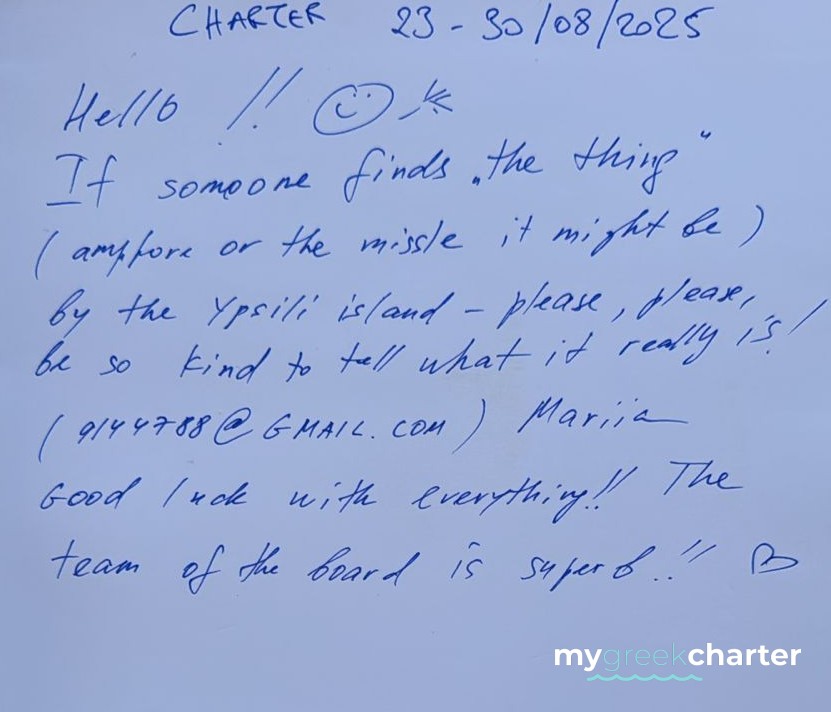 CHARTER 23 - 30/08/2025
Hello !! ☺
If someone finds „the thing"
( amphore or the missle it might be )
by the Ypsili island - please, please,
be so kind to tell what it really is!
( 9144788@GMAIL.COM ) Mariia
Good luck with everything!! The
team of the board is superb!! ♡
mygreekcharter